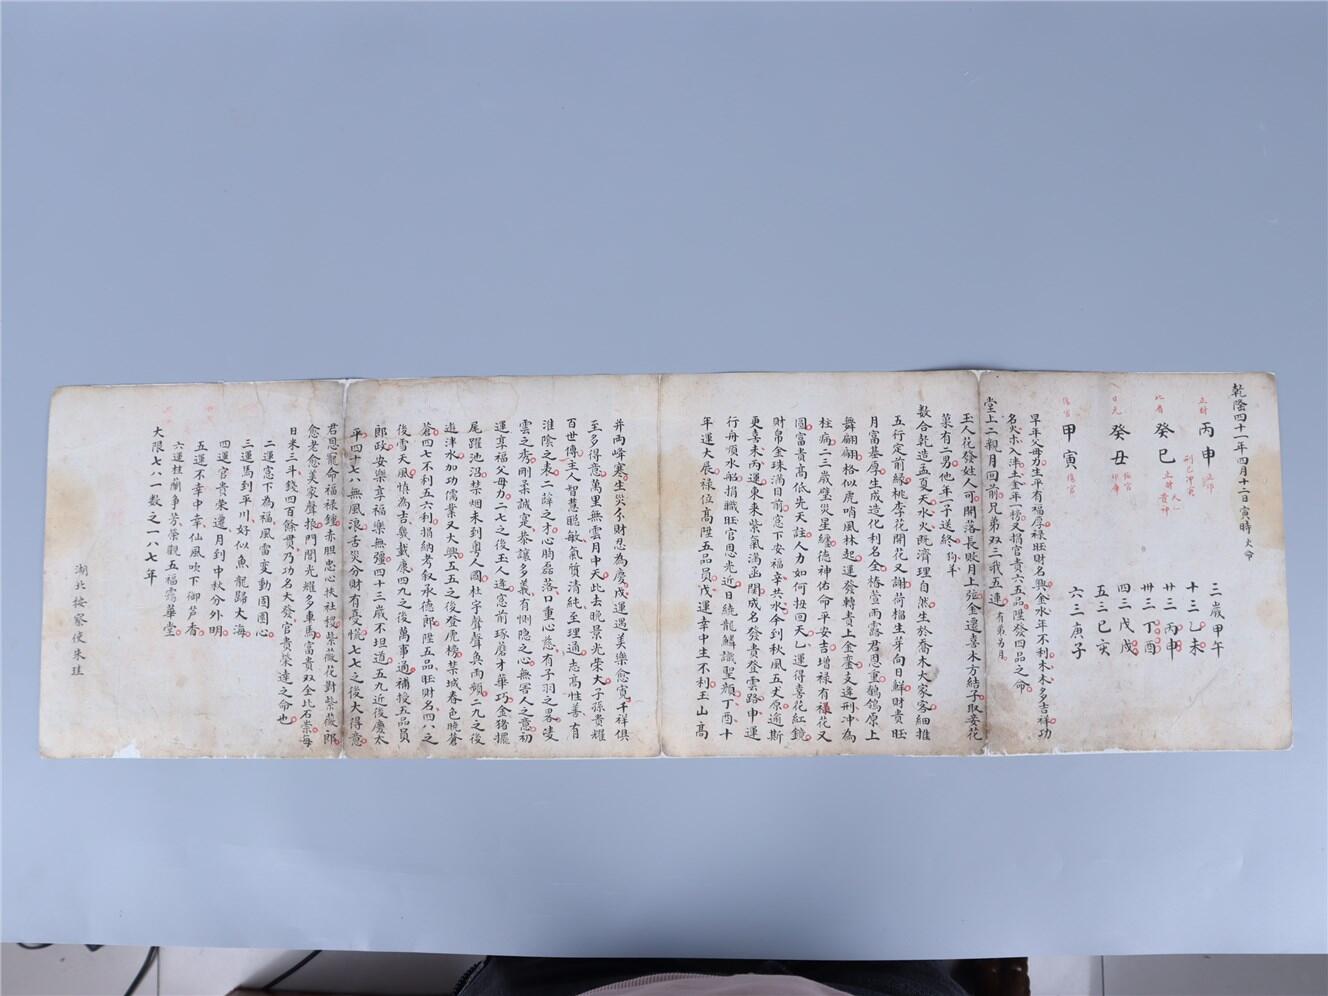 乾隆四十一年四月十二日寅時大命
丙申
癸巳
癸丑
甲寅
三歲甲午
十三乙未
廿三丙申
卅三丁酉
四三戊戌
五三己亥
六三庚子
早年父母力主平有福厚祿旺財名興金水年不利木木多吉祥功
堂上二親月回前兄弟双三我五連
玉人花發姓人可開落長賬月上弦金邊喜木方結子取妾花
菓有二男他年一子送終
數合乾造孟夏天水火既濟理自然生於喬木大家客細推
五行定前緣桃李花開花又謝荷榴生芽向日鮮財貴旺
月富基厚生成造化利名全椿萱雨露君恩重鶺鴒原上
舞翩翩格似虎哨風林起運發轉貴上金鑾支逢刑冲為
柱病二三歲壁災星纏德神佑命平安吉增祿有福花又
圆富貴高低先天註人力如何扭回天乙運得喜花紅鏡
財帛金珠滿日前窓下安福辛共水今到秋風丈原逾斯
更喜未丙運東東紫氣滿函關成名發貴登雲路申運
行舟順水船捐職旺官恩光近日繞龍鱗識聖顏丁酉十
年運大展祿位高陞五品員戊運幸中生不利玉山高
并両峰寒生災多財忍為慶戌運遇美樂愈寅千祥俱
至多得意萬里無雲月中天此去晚景光榮大子孫貴耀
百世傳主人智慧聰敏氣質清純至理通志高性善有
淮陰之表二薛之才心昫磊落口重心慈有子羽之畧凌
雲之秀剛柔誠寔恭讓多義有恻隐之心無害人之意初
運享福父母力二七之後玉人逢窓前琢磨才華巧金猪擺
尾躍池沼禁烟未到粤人國杜宇聲聲奐雨頻二九之後
遊泮水加功儒業又大興五五之後登虎榜禁城春色曉蒼
蒼四七不利五六利捐納考叙承德郎陞五品旺財名四八之
後雪天風慎為吉歲載康四九之後萬事通補授五品員
郎政安樂享福樂無彊四十三歲不坦道五九近後慶太
平四十七八無風浪舌災分財有憂慌七七之後大得意
君恩寵命福祿鍾赤胆忠心扶社稷紫薇花對紫薇郎
愈老愈美家聲振門閭光耀多車馬富貴双全比石崇每
日米三斗錢四百餘貫乃功名大發官貴榮達之命也
二運窓下為福風雷变動園園心
三運馬到平川好似魚龍歸大海
四運官貴榮遷月到中秋分外明
五運不幸中幸仙風吹下御芦香
六運桂蘭爭芳榮觀五福靄華堂
大限七八一數之一八七年
湖北按察使朱珪